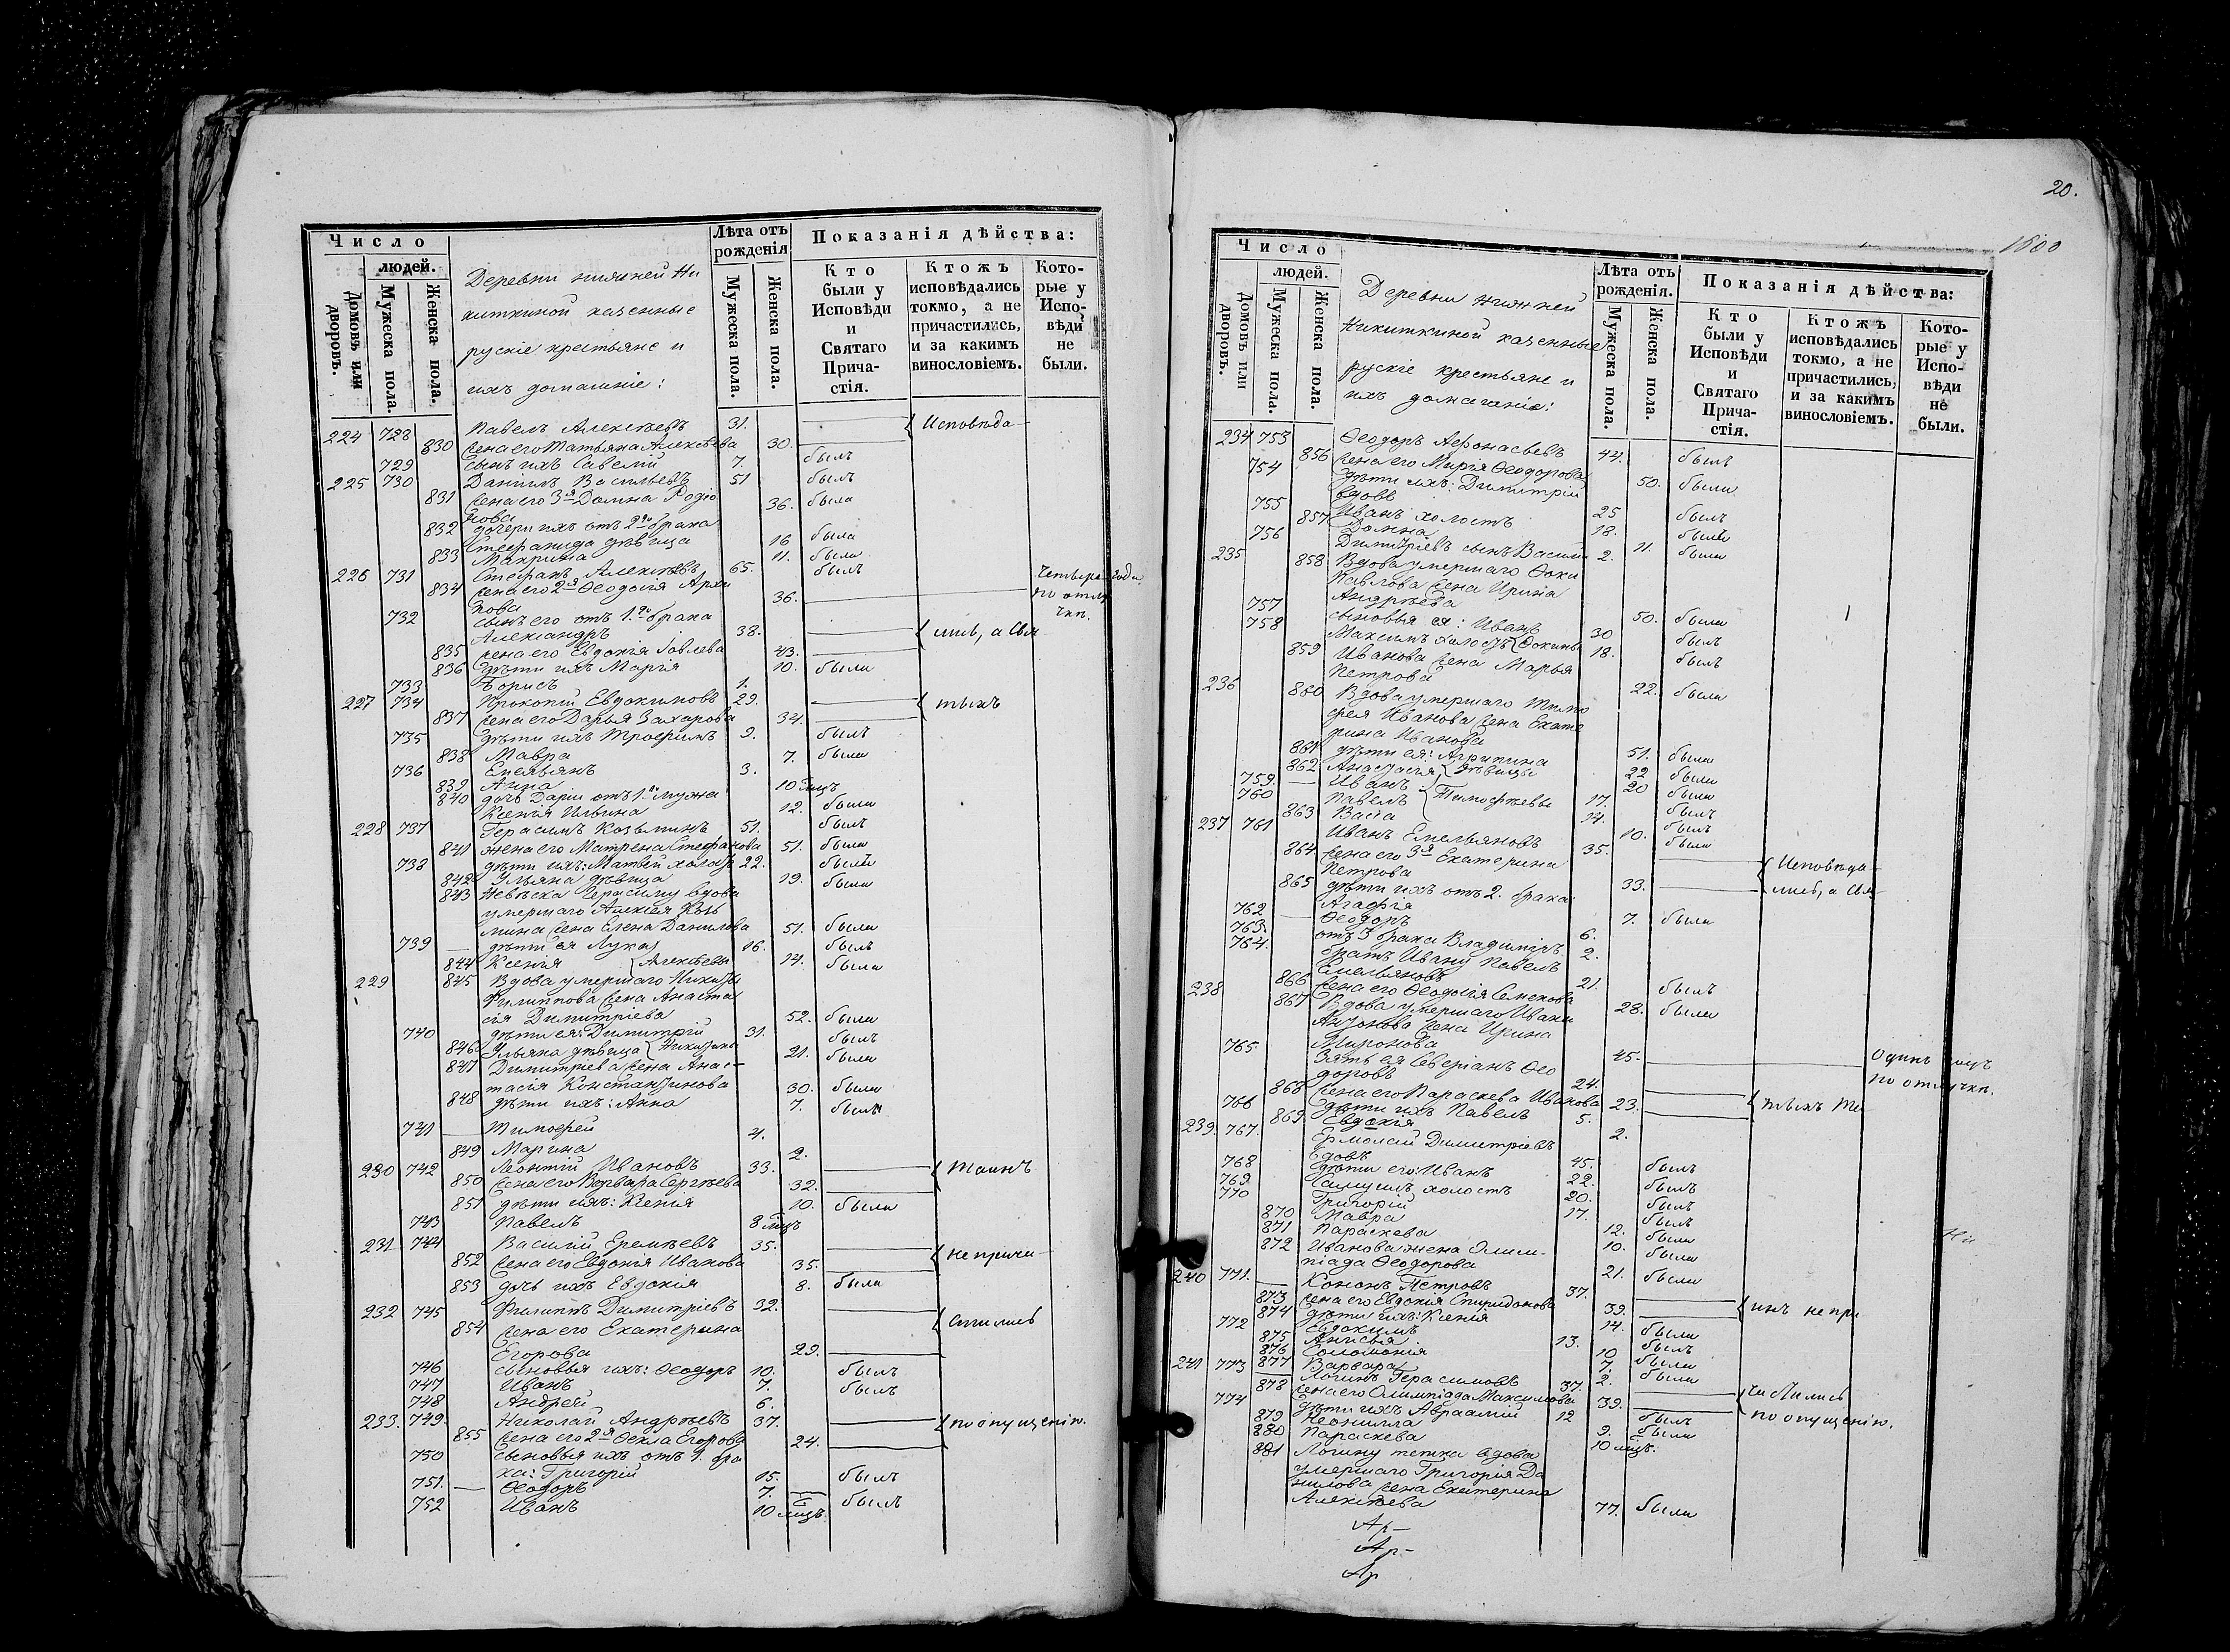 Число
людей.
Домовъ или дворовъ.
Мужеска пола.
Женска пола.
Деревни нижней Ни
киткиной казенные
руские крестьяне и
ихъ домашніе:
Лѣта отъ рожденія
Мужеска пола.
Женска пола.
Показанія дѣйства:
Кто были у Исповѣди и Святаго Прича-стія.
Ктожъ исповѣдались токмо, а не причастились, и за какимъ винословіемъ.
Кото-рые у Испо-вѣди не были.
224 728 Павелъ Алексѣевъ 31. { Исповѣда-
830 жена его Татьяна Алексѣева 30.
729 сынъ ихъ Савелій 7. былъ
225 730 Даніилъ Васильевъ 51 былъ
831 жена его 3я Домна Родіо 36. была
нова
832 дочери ихъ отъ 2го брака
Стефанида дѣвица 16 была
833 Макрина 11. была
226 731 Стефанъ Алексѣевъ 65. былъ
834 жена его 2я Ѳеодосія Архи 36. Четыре года
пова по отлу
732 сынъ его отъ 1го брака чкѣ.
Александръ 38. { лись, а Свя
835 жена его Евдокія Іовлева 43.
836 дѣти ихъ Марія 10. была
733 Борисъ 1.
227 734 Прокопій Евдокимовъ 29. { тыхъ
837 жена его Дарья Захарова 34.
735 дѣти ихъ Трофимъ 9. былъ
838 Мавра 7. была
736 Емельянъ 3.
839 Анна 10 мцъ
840 дочь Даріи отъ 1го мужа
Ксенія Ильина 12. была
228 737 Герасимъ Козьминъ 51. былъ
841 жена его Матрена Стефанова 51. была
738 дѣти ихъ: Матвей холостъ 22. былъ
842 Ульяна дѣвица 19. была
843 Невѣска Герасиму вдова
умершаго Алексея Козь
мина жена Елена Данилова 51. была
739 дѣти ея Лука 16. былъ
844 Ксенія { Алексѣевы 14. была
229 845 Вдова умершаго Никиты
Филиппова жена Анаста
сія Димитріева 52. была
740 дѣти ея: Димитрій 31. былъ
846 Ульяна дѣвица { Никитины 21. была
847 Димитріева жена Анас-
тасія Константинова 30. была
848 дѣти ихъ: Анна 7. была
741 Тимофей 4.
849 Марина 2.
230 742 Леонтій Ивановъ 33. { Таинъ
850 жена его Варвара Сергѣева 32.
851 дѣти ихъ: Ксенія 10. была
743 Павелъ 8 мцъ
231 744 Василій Еремѣевъ 35. { не прича-
852 жена его Евдокія Иванова 35.
853 дочь ихъ Евдокія 8. была
232 745 Филиппъ Димитріевъ 32. { стились
854 жена его Екатерина
Егорова 29.
746 сыновья ихъ: Ѳеодоръ 10. былъ
747 Иванъ 7. былъ
748 Андрей 6.
233. 749. Николай Андрѣевъ 37. { по опущенію.
855 жена его 2я Ѳекла Егорова 24.
750 сыновья ихъ отъ 1. бра
ка: Григорій 15. былъ
751. Ѳеодоръ 7.
752 Иванъ 10 мцъ. былъ
20.
1800
Число
людей.
Домовъ или дворовъ.
Мужеска пола.
Женска пола.
Деревни нижней
Никиткиной казенные
руские крестьяне и
ихъ домашніе:
Лѣта отъ рожденія.
Мужеска пола.
Женска пола.
Показанія дѣйства:
Кто были у Исповѣди и Святаго Прича-стія.
Ктожъ исповѣдались токмо, а не причастились, и за какимъ винословіемъ.
Кото-рые у Испо-вѣди не были.
234 753 Ѳеодоръ Афонасьевъ 44. былъ
856 жена его Марія Ѳеодорова 50. была
754 дѣти ихъ: Димитрій
вдовъ 25 былъ
755 Иванъ холостъ 18. былъ
857 Домна 11. была
756 Димитріевъ сынъ Васил 2.
235 858 Вдова умершаго Ѳоки
Павлова жена Ирина
Андрѣева 50. была
757 сыновья ея: Иванъ 30 былъ
758 Максимъ холостъ { Ѳокины 18. былъ
859 Иванова жена Марья
Петрова 22. была
236 860 Вдова умершаго Тимо
фея Иванова жена Екате
рина Иванова 51. была
861 дѣти ея: Агрипина 22 была
862 Анастасія { дѣвицы 20 была
759 Иванъ 17. былъ
760 Павелъ { Тимофѣевы 14. былъ
863 Васса 10. была
237 761 Иванъ Емельяновъ 35. { Исповѣда-
864 жена его 3я Екатерина
Петрова 33. { лись, а Свя-
865 дѣти ихъ отъ 2. брака
Агафія 7. была
762 Ѳеодоръ 6.
763. отъ 3 брака Владиміръ 2.
764. братъ Ивану Павелъ
Емельяновъ 21. былъ
866 жена его Ѳеодосія Семенова 28. была
238 867 Вдова умершаго Ивана
Антонова жена Ирина
Миронова 45. Одинъ годъ
765. Зять ея Северіанъ Ѳео по отлучкѣ.
доровъ 24.
868 жена его Параскева Иванова 23. { тыхъ Та
766 дѣти ихъ Павелъ 5.
869. Евдокія 2.
239. 767. Ермолай Димитріевъ
вдовъ 45. былъ
768 дѣти его: Иванъ 22. былъ
769 Самуилъ холостъ 20. былъ
770 Григорій 17. былъ
870 Мавра 12. была
871 Параскева 10. была
872 Иванова жена Олим-
піада Ѳеодорова 21. была
240 771. Кононъ Петровъ 37. { инъ не при
873 жена его Евдокія Спиридонова 39.
874 дѣти ихъ: Ксенія 14. была
772 Евдокимъ 13. былъ
875 Анисья 10 была
876 Соломонія 7. была
877 Варвара 2.
241 773 Логинъ Герасимовъ 37. { частились
878 жена его Олимпіада Максимова 39. по опущенію.
774 дѣти ихъ Авраамій 12 былъ
879 Неонилла 9. была
880 Параскева 10 мцъ.
881 Логину тетка вдова
умершаго Григорія Да
нилова жена Екатерина
Алексѣева 77. была
Ар-
Ар-
Ар